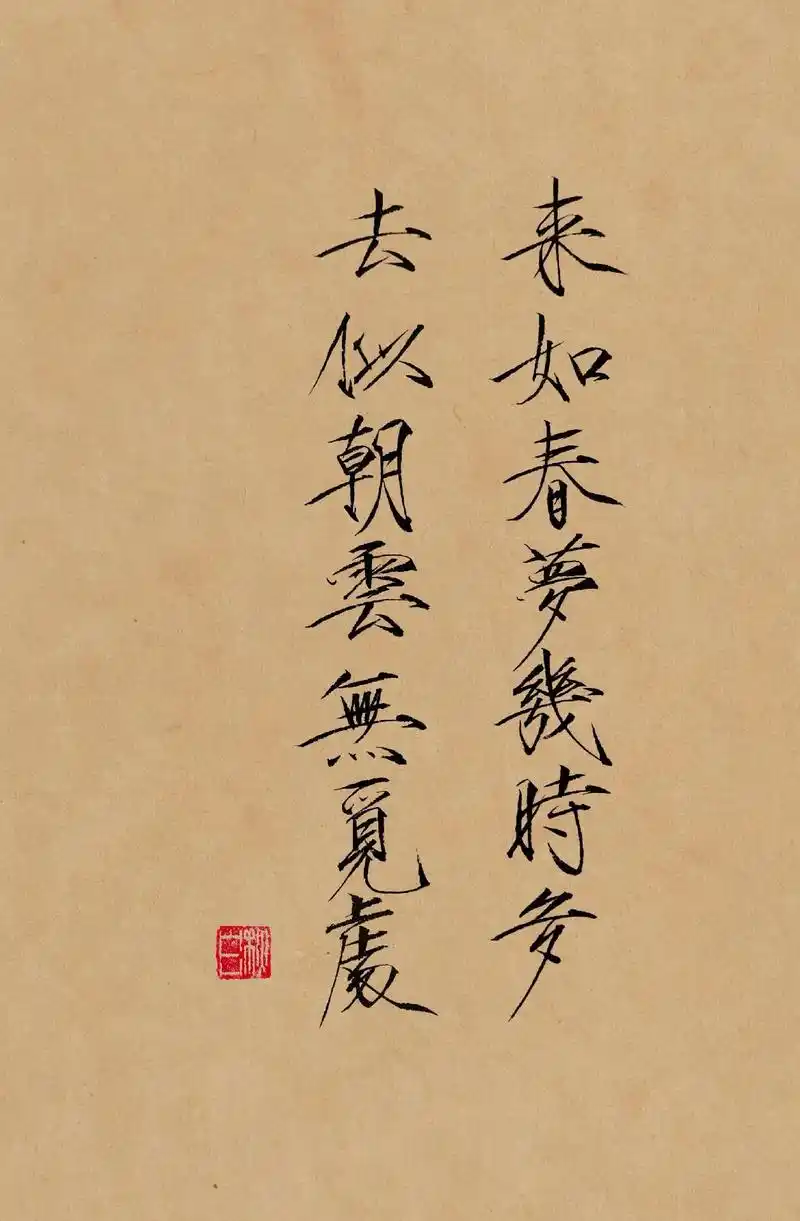 来如春夢幾時多
去似朝雲無覓處